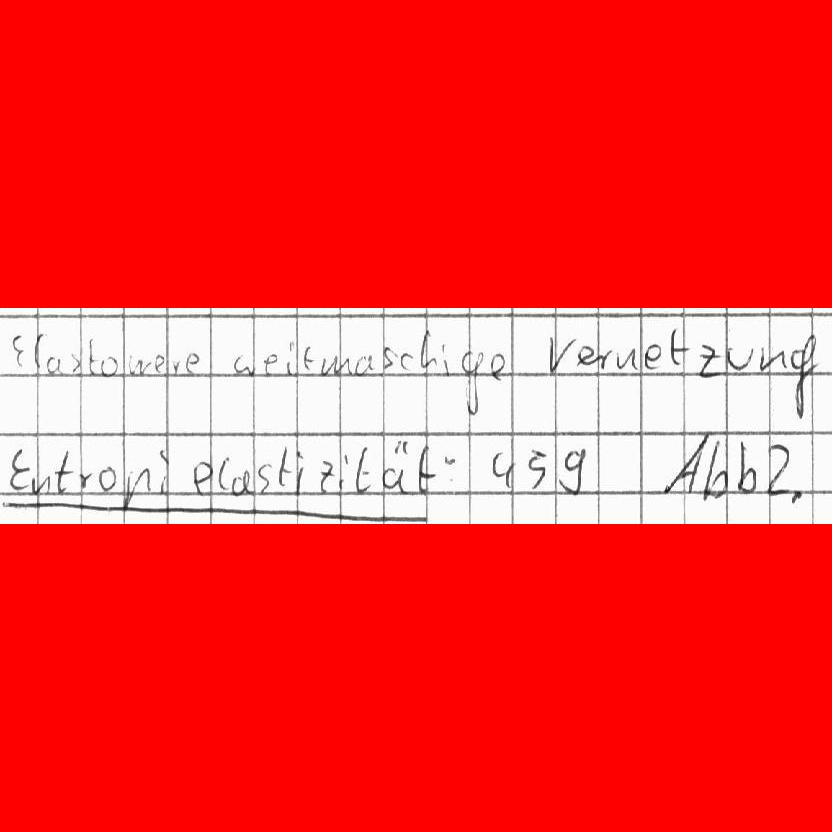 Elastomere weitmaschige Vernetzung
Entropielastizität: 459 Abb2.